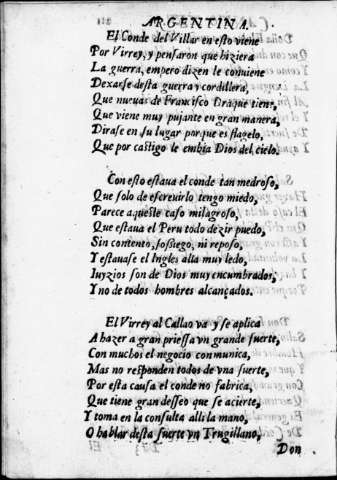 ARGENTINA.
El Conde del Villar en esto viene
Por Virrey, y pensaron que hiziera
La guerra, empero dizen le conuiene
Dexarse desta guerra y cordillera,
Que nueuas de Francisco Draque tiene,
Que viene muy pujante en gran manera,
Dirase en su lugar porque es flagelo,
Que por castigo le embia Dios del cielo.
Con esto estaua el conde tan medroso,
Que solo de escreuirlo tengo miedo,
Parece aqueste caso milagroso,
Que estaua el Peru todo dezir puedo,
Sin contento, sossiego, ni reposo,
Y estauase el Ingles alla muy ledo,
Iuyzios son de Dios muy encumbrados,
Y no de todos hombres alcançados.
El Virrey al Callao va y se aplica
A hazer a gran priessa vn grande fuerte,
Con muchos el negocio conmunica,
Mas no responden todos de vna suerte,
Por esta causa el conde no fabrica,
Que tiene gran desseo que se acierte,
Y toma en la consulta alli la mano,
O hablar desta suerte vn Trugillano,
Don